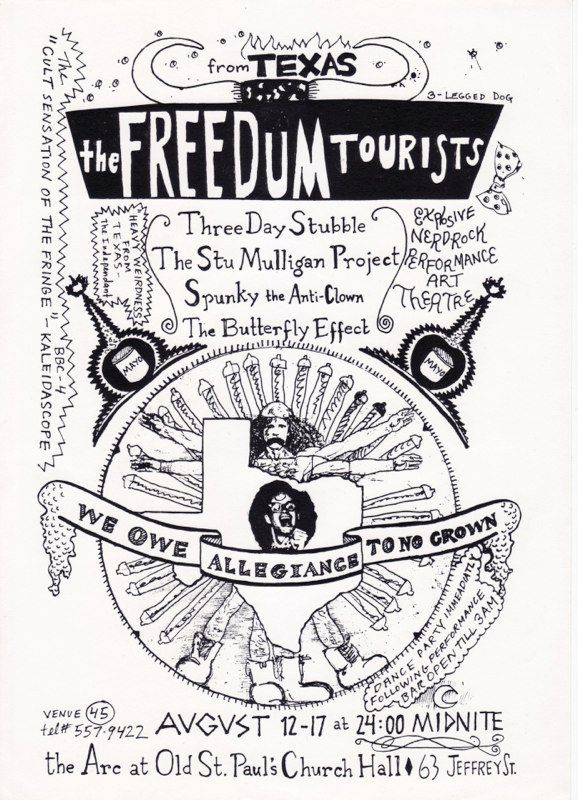 from TEXAS
3-LEGGED DOG
the FREEDUM TOURISTS
The
"CULT SENSATION OF THE FRINGE"
BBC-4
- KALEIDASCOPE
"HEAVY WEIRDNESS
FROM
TEXAS"-
The Independant
Three Day Stubble
The Stu Mulligan Project
Spunky the Anti-Clown
The Butterfly Effect
EXPLOSIVE
NERDROCK
PERFORMANCE
ART
THEATRE
MAYO
MAYO
WE OWE ALLEGIANCE TO NO CROWN
DANCE PARTY IMMEADIATLY
FOLLOWING PERFORMANCE
BAR OPEN TILL 3AM
VENUE 45
tel# 557-9422
AUGUST 12-17 at 24:00 MIDNITE
the Arc at Old St. Paul's Church Hall ♦ 63 JEFFREY ST.